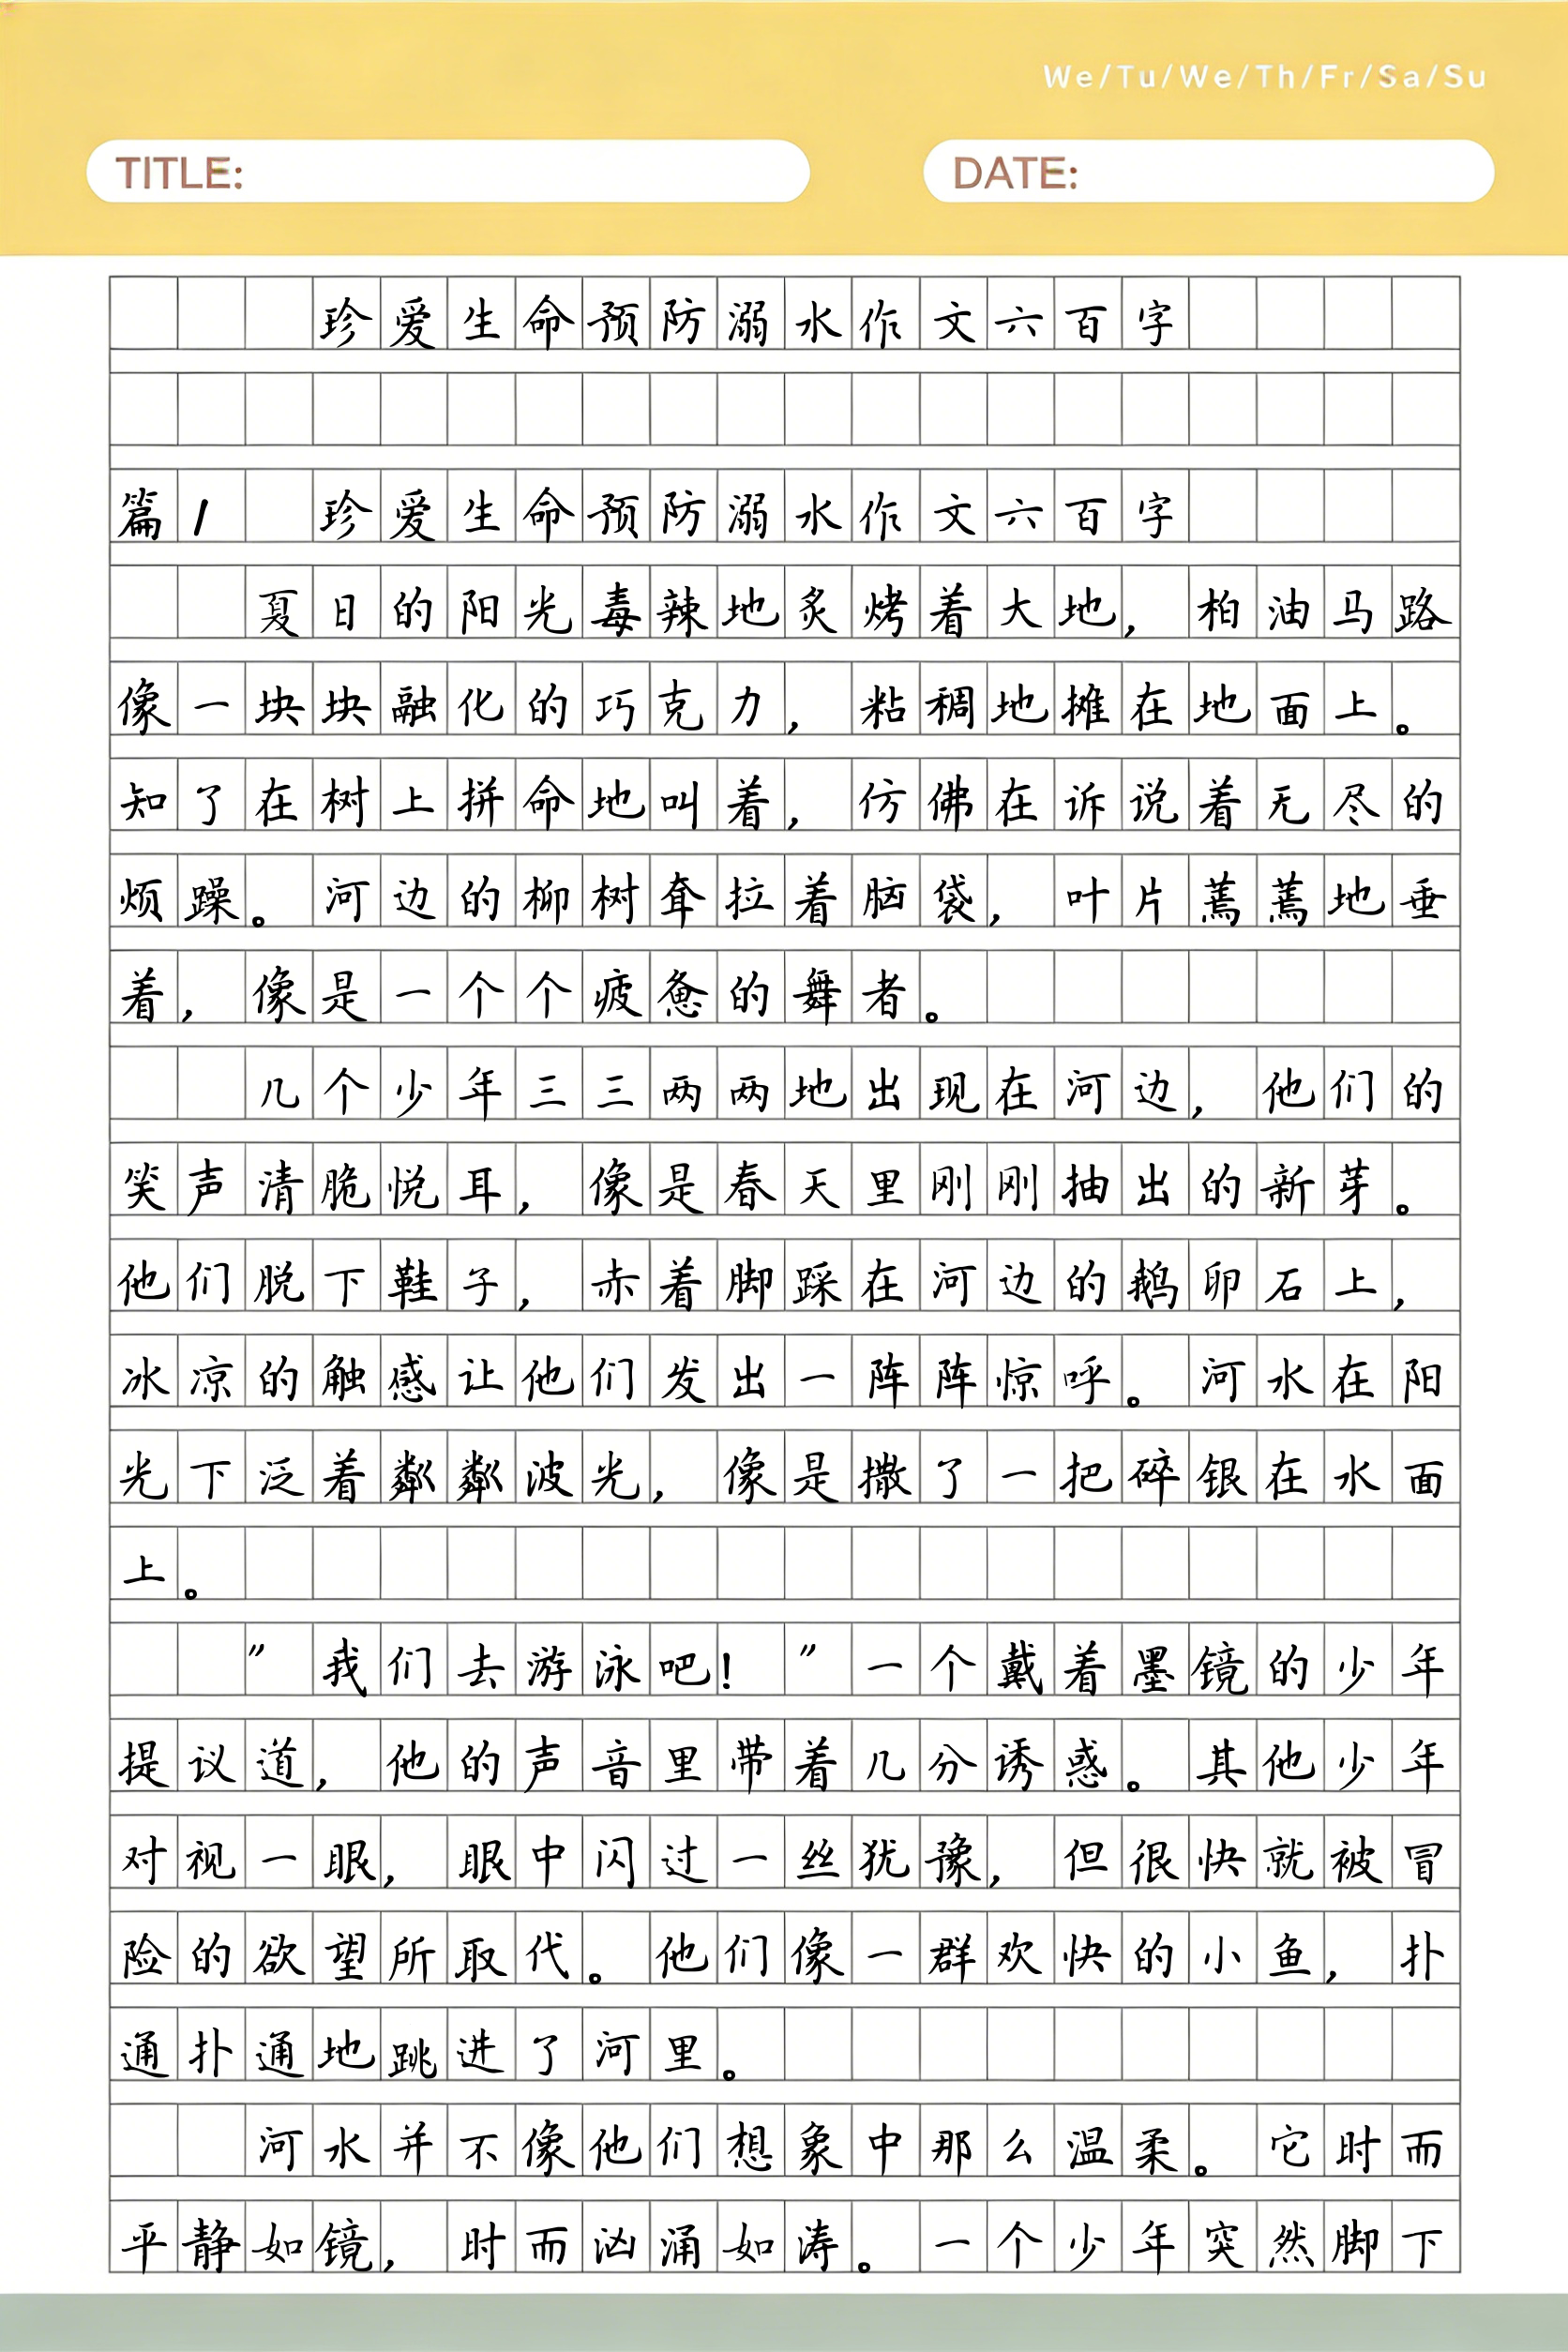 We/Tu/We/Th/Fr/Sa/Su
TITLE: DATE:
珍爱生命预防溺水作文六百字
篇1 珍爱生命预防溺水作文六百字
夏日的阳光毒辣地炙烤着大地，柏油马路
像一块块融化的巧克力，粘稠地摊在地面上。
知了在树上拼命地叫着，仿佛在诉说着无尽的
烦躁。河边的柳树耷拉着脑袋，叶片蔫蔫地垂
着，像是一个个疲惫的舞者。
几个少年三三两两地出现在河边，他们的
笑声清脆悦耳，像是春天里刚刚抽出的新芽。
他们脱下鞋子，赤着脚踩在河边的鹅卵石上，
冰凉的触感让他们发出一阵阵惊呼。河水在阳
光下泛着粼粼波光，像是撒了一把碎银在水面
上。
"我们去游泳吧！"一个戴着墨镜的少年
提议道，他的声音里带着几分诱惑。其他少年
对视一眼，眼中闪过一丝犹豫，但很快就被冒
险的欲望所取代。他们像一群欢快的小鱼，扑
通扑通地跳进了河里。
河水并不像他们想象中那么温柔。它时而
平静如镜，时而汹涌如涛。一个少年突然脚下